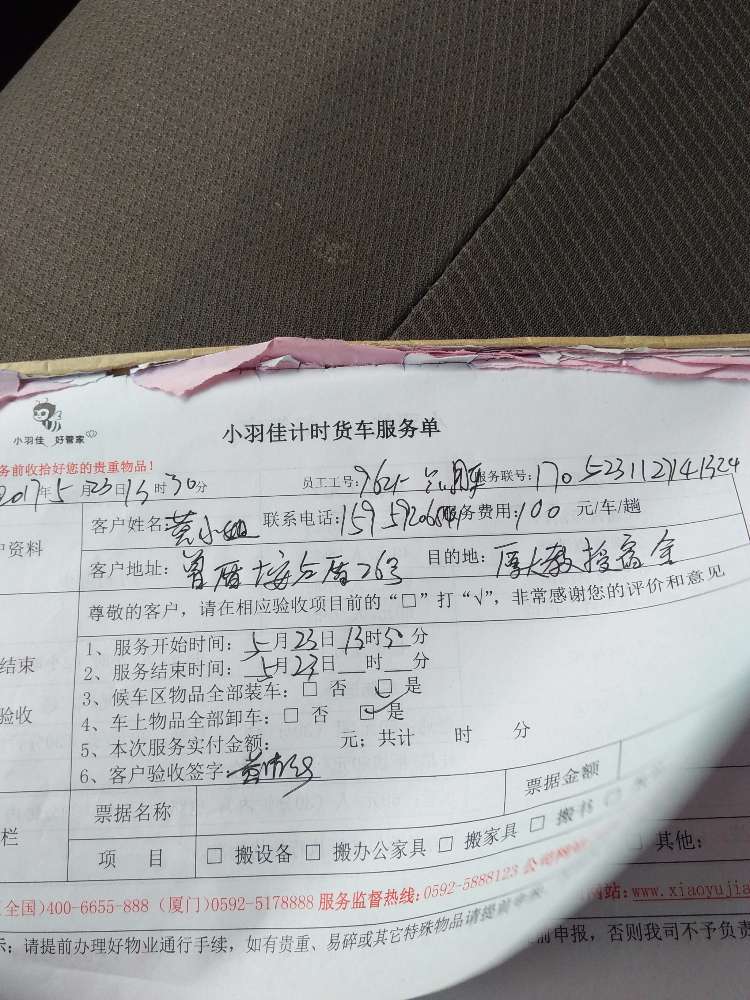 小羽佳 好管家
小羽佳计时货车服务单
务前收拾好您的贵重物品！
2017年5月23日13时30分 员工工号： 服务联号：170523112141324
户资料 客户姓名：黄小姐 联系电话： 服务费用：100 元/车/趟
客户地址：曾厝 目的地：厦大教授宿舍
尊敬的客户，请在相应验收项目前的“□”打“√”，非常感谢您的评价和意见
结束
验收
1、服务开始时间：5月23日13时50分
2、服务结束时间：5月23日 时 分
3、候车区物品全部装车：□ 否 □ 是
4、车上物品全部卸车：□ 否 ☑ 是
5、本次服务实付金额： 元；共计 时 分
6、客户验收签字：
栏 票据名称 票据金额
项 目 □ 搬设备 □ 搬办公家具 □ 搬家具 □ 搬书 其他：
(全国)400-6655-888 (厦门)0592-5178888 服务监督热线：0592-5888123 公司网站：www.xiaoyujia
示：请提前办理好物业通行手续，如有贵重、易碎或其它特殊物品请提前申报，否则我司不予负责